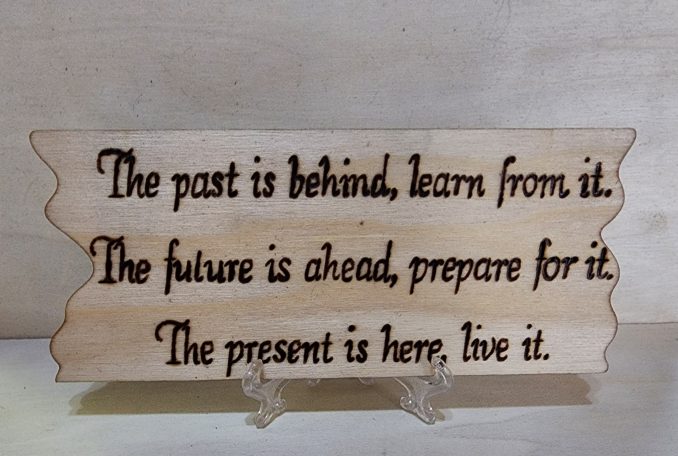 The past is behind, learn from it.
The future is ahead, prepare for it.
The present is here, live it.